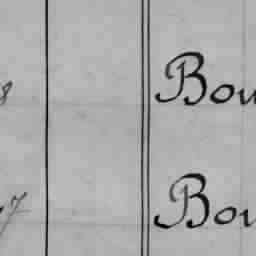 8 Bou
7 Bou